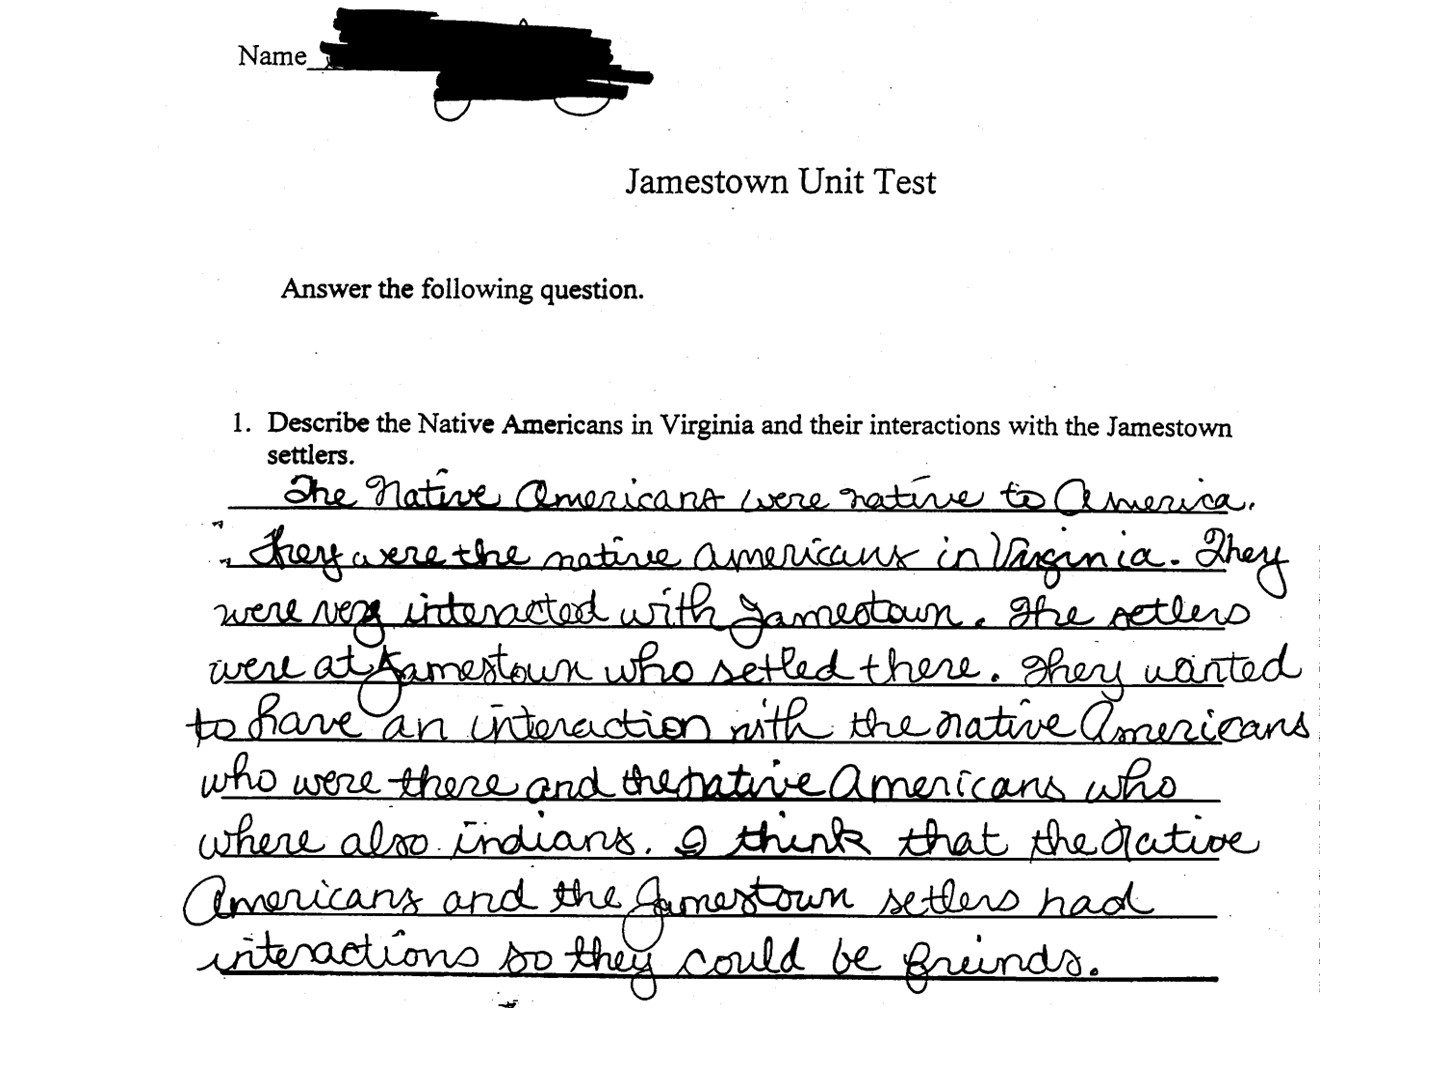 Name
Jamestown Unit Test
Answer the following question.
1. Describe the Native Americans in Virginia and their interactions with the Jamestown
settlers.
The Native Americans were native to America.
They were the native americans in Virginia. They
were very interacted with Jamestown. The setlers
were at Jamestown who setled there. They wanted
to have an interaction with the native Americans
who were there and the native Americans who
where also indians. I think that the Native
Americans and the Jamestown setlers had
interactions so they could be freinds.